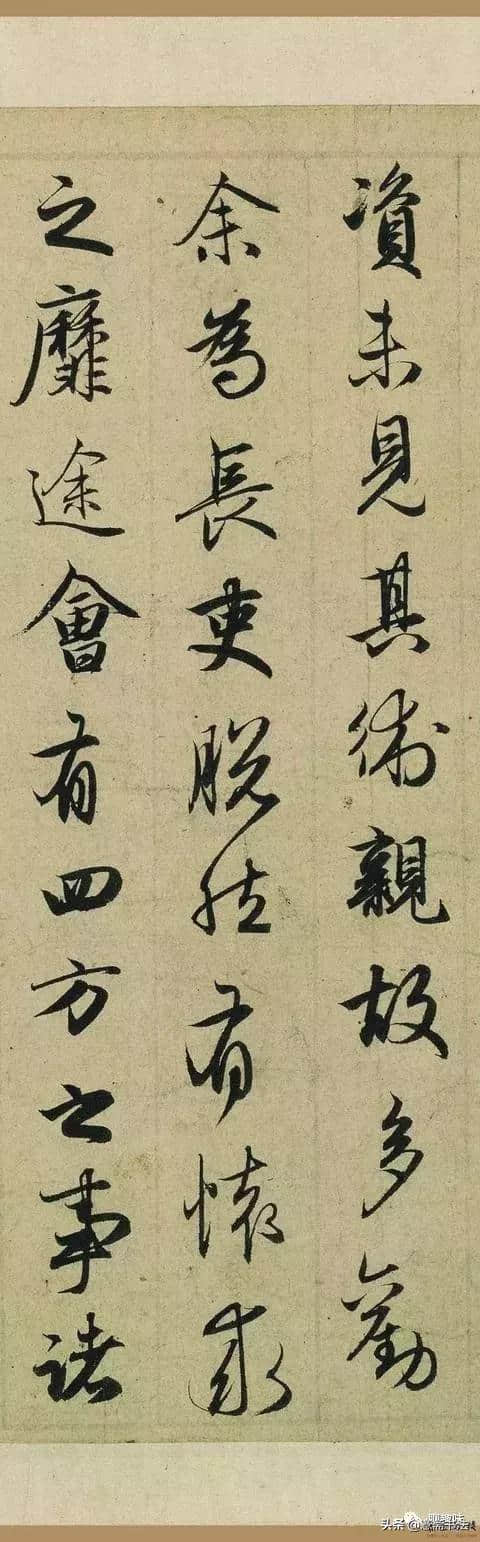 資未見其術親故多勸
余為長吏脱然有懷求
之靡途會有四方之事諸
头条